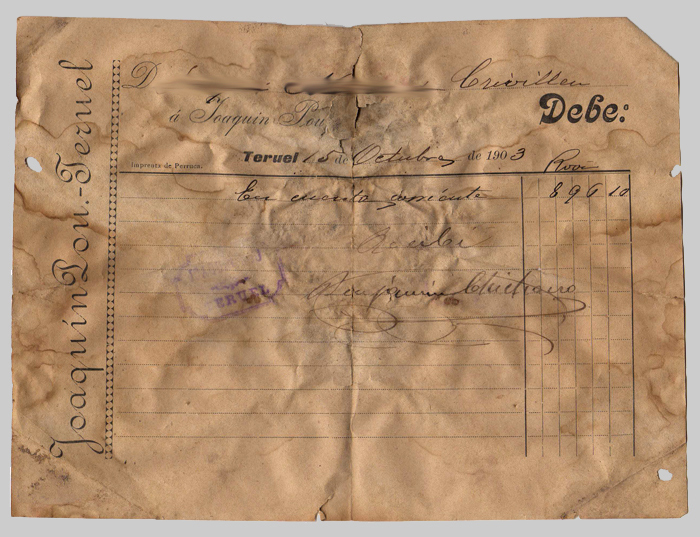 Joaquín Pou.-Teruel
D Crivillen
á Joaquín Pou,
Debe:
Imprenta de Perruca.
Teruel 15 de Octubre de 1903
En cuenta corriente 896 10
Recibí
Benjamin
TERUEL